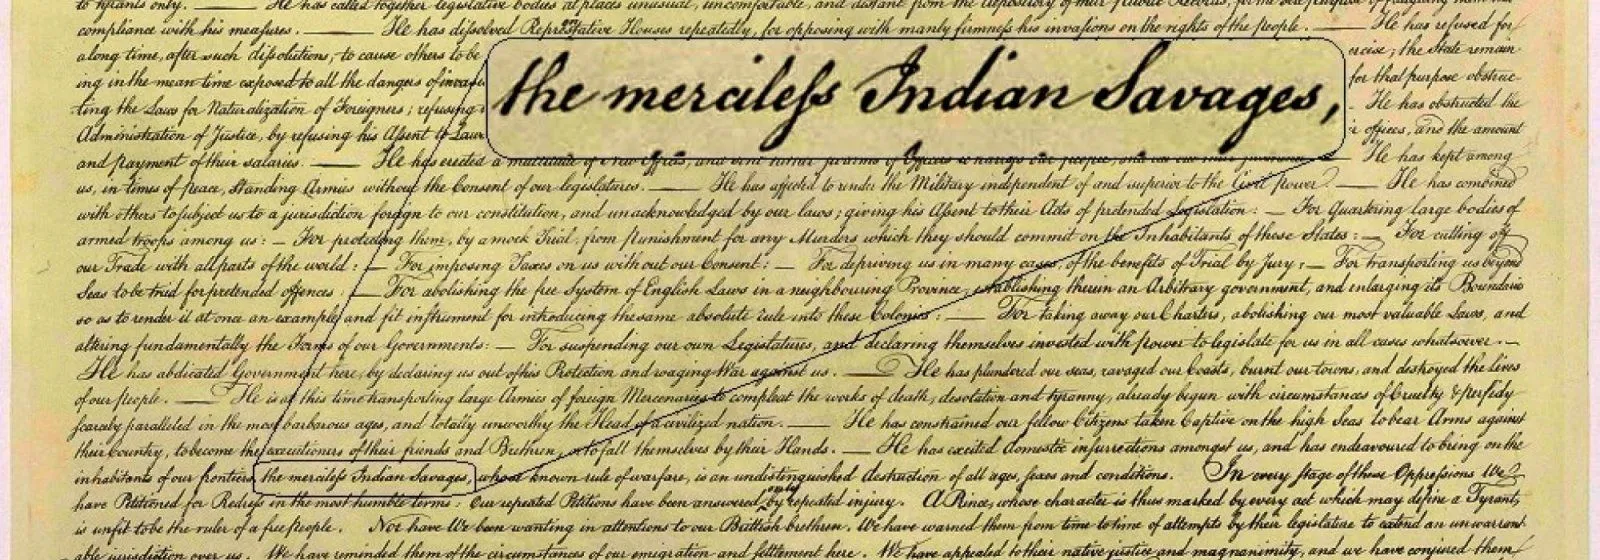 to tyrants only. —— He has called together legislative bodies at places unusual, uncomfortable, and distant from the depository of their public Records, for the sole purpose of fatiguing them into
compliance with his meaſures. —— He has diſsolved Repreſentative Houses repeatedly, for opposing with manly firmneſs his invasions on the rights of the people. —— He has refused for
along time, after such diſsolutions, to cause others to be
ercise; the State remain
the mercileſs Indian Savages,
ing in the mean time exposed to all the dangers of
for that purpose obstruc-
ting the Laws for Naturalization of Foreigners; refusing
He has obstructed the
Administration of Justice, by refusing his Aſsent to Laws
offices, and the amount
and payment of their salaries. —— He has erected a multitude of New Offices, and sent hither swarms of Officers to harraſs our people,
He has kept among
us, in times of peace, Standing Armies without the Consent of our legislatures. —— He has affected to render the Military independent of and superior to the Civil power. —— He has combined
with others to subject us to a jurisdiction foreign to our constitution, and unacknowledged by our laws; giving his Aſsent to their Acts of pretended Legislation: — For Quartering large bodies of
armed troops among us: — For protecting them, by a mock Trial, from punishment for any Murders which they should commit on the Inhabitants of these States: — For cutting off
our Trade with all parts of the world: — For imposing Taxes on us without our Consent: — For depriving us in many cases, of the benefits of Trial by Jury: — For transporting us beyond
Seas to be tried for pretended offences: — For abolishing the free System of English Laws in a neighbouring Province, establishing therein an Arbitrary government, and enlarging its Boundaries
so as to render it at once an example and fit inſtrument for introducing the same absolute rule into these Colonies: — For taking away our Charters, abolishing our most valuable Laws, and
altering fundamentally the Forms of our Governments: — For suspending our own Legislatures, and declaring themselves invested with power to legislate for us in all cases whatsoever. —
He has abdicated Government here, by declaring us out of his Protection and waging War against us. —— He has plundered our seas, ravaged our Coasts, burnt our towns, and destroyed the lives
of our people. —— He is at this time transporting large Armies of foreign Mercenaries to compleat the works of death, desolation and tyranny, already begun with circumstances of Cruelty & perfidy
scarcely paralleled in the most barbarous ages, and totally unworthy the Head of a civilized nation. —— He has constrained our fellow Citizens taken Captive on the high Seas to bear Arms against
their Country, to become the executioners of their friends and Brethren, or to fall themselves by their Hands. —— He has excited domestic inſurrections amongst us, and has endeavoured to bring on the
inhabitants of our frontiers, the mercileſs Indian Savages, whose known rule of warfare, is an undistinguished destruction of all ages, sexes and conditions. In every stage of these Oppreſsions We
have Petitioned for Redreſs in the most humble terms: Our repeated Petitions have been answered only by repeated injury. A Prince, whose character is thus marked by every act which may define a Tyrant,
is unfit to be the ruler of a free people. Nor have We been wanting in attentions to our Brittish brethren. We have warned them from time to time of attempts by their legislature to extend an unwarrant-
able jurisdiction over us. We have reminded them of the circumstances of our emigration and settlement here. We have appealed to their native justice and magnanimity, and we have conjured them